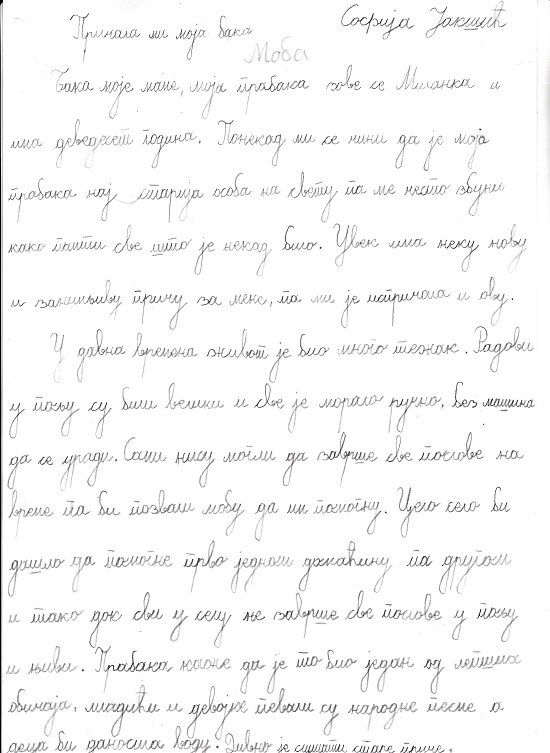 Причала ми моја бака
Софија Јакшић
Моба
Бака моје маме, моја прабака зове се Миланка и
има деведесет година. Понекад ми се чини да је моја
прабака нај старија особа на свету па ме често збуни
како памти све што је некад било. Увек има неку нову
и занимљиву причу за мене, па ми је испричала и ову.
У давна времена живот је био много тежак. Радови
у пољу су били велики и све је морало ручно, без машина
да се уради. Сами нису могли да заврше све послове на
време па би позвали мобу да им помогну. Цело село би
дошло да помогне прво једном домаћину па другом
и тако док сви у селу не заврше све послове у пољу
и њиви. Прабака каже да је то био један од лепших
обичаја, младићи и девојке певали су народне песме а
деца би доносила воду. Дивно је слушати старе приче.